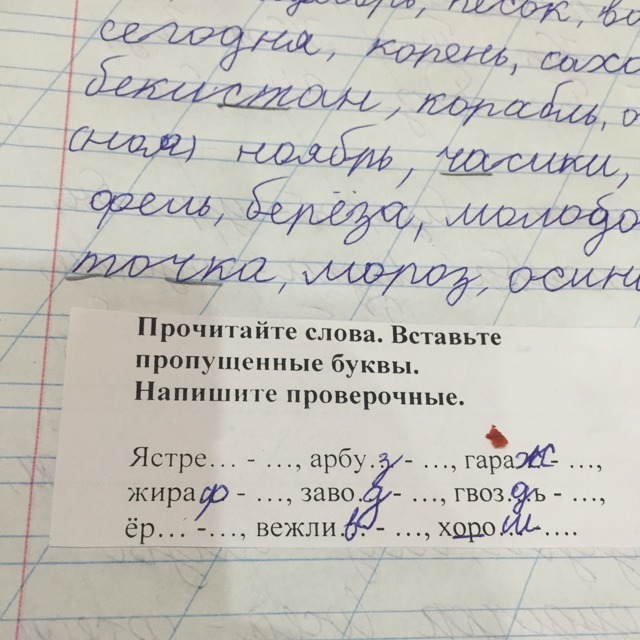 песок,
сегодня, корень,
бекистан, корабль,
ноябрь, часики,
фель, берёза,
точка, мороз,
Прочитайте слова. Вставьте
пропущенные буквы.
Напишите проверочные.
Ястре... - ..., арбу.з - ..., гараж - ...,
жираф - ..., заво.д - ..., гвоз.дь - ...,
ёр... -..., вежли.в. - ..., хорош ....